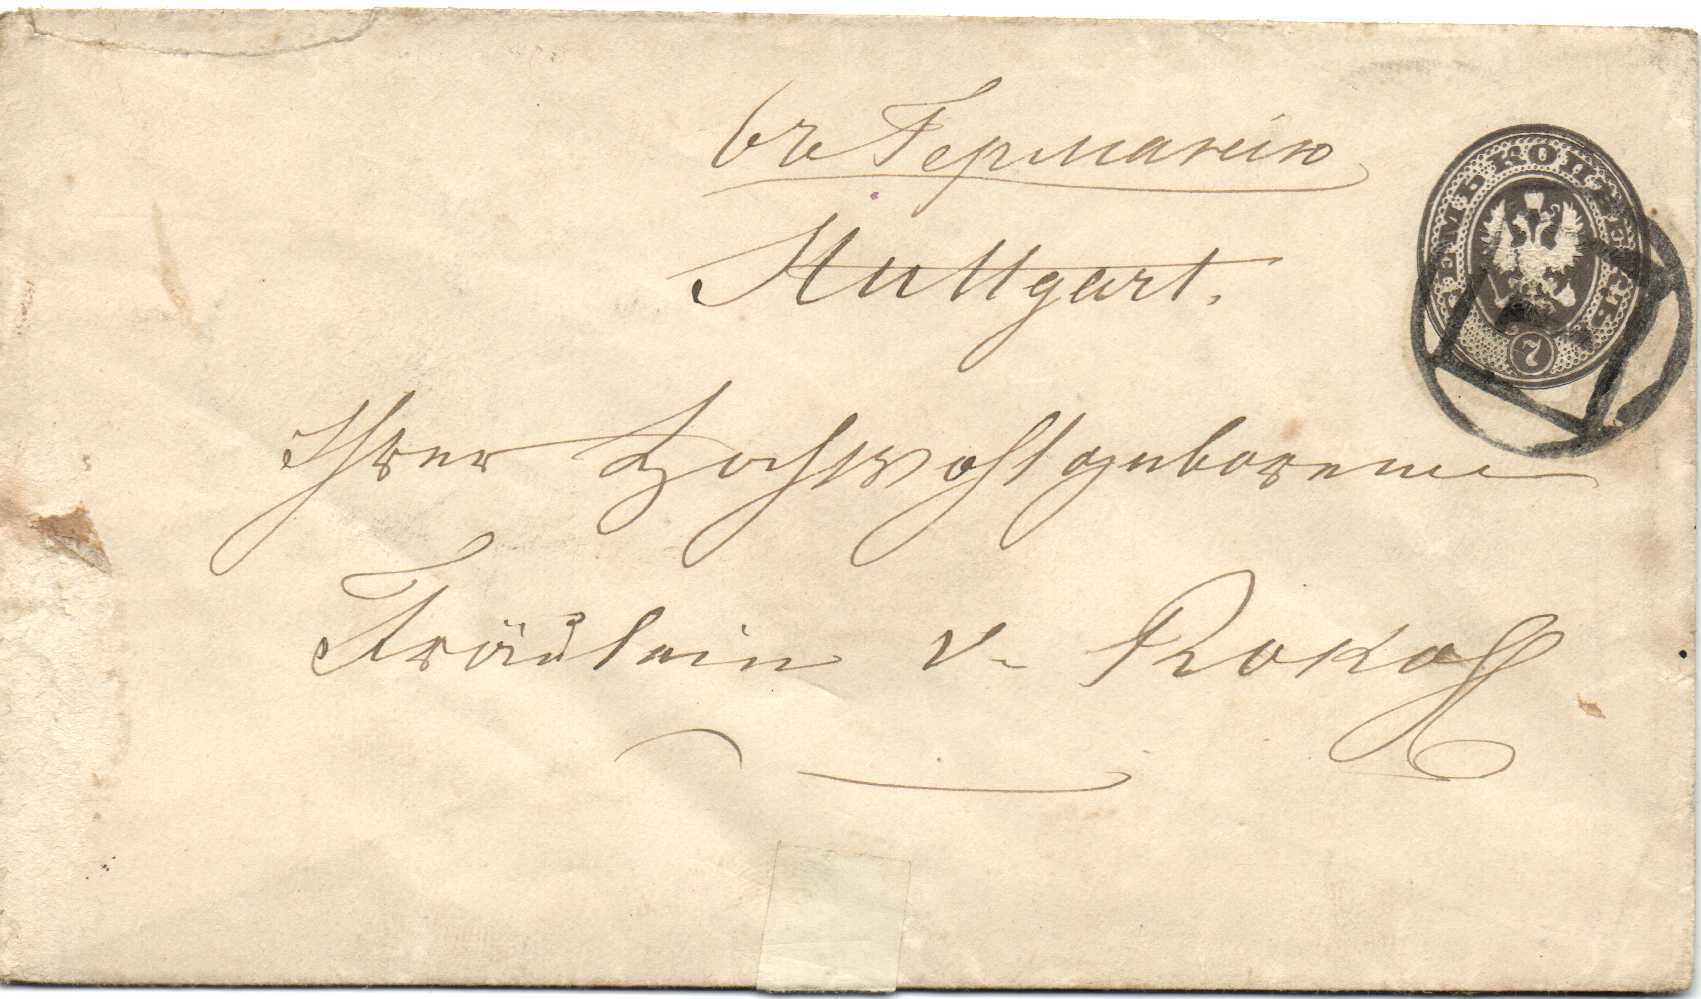 въ Германію
Stuttgart.
СЕМЬ КОПѢЕКЪ
7
Ihrer Hochwohlgeborene
Fräulein v. Rokoff